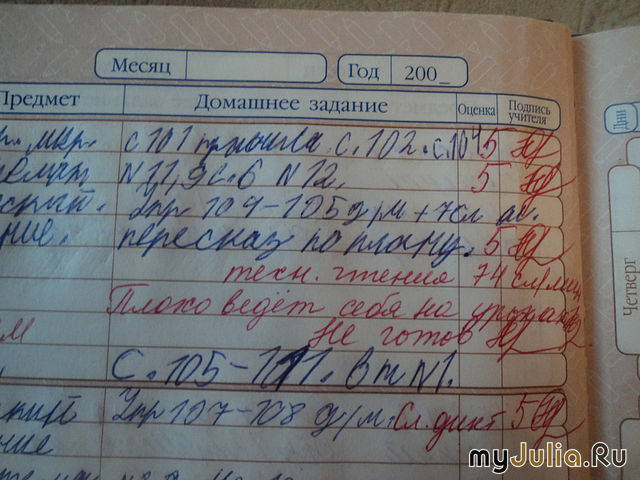 Месяц
Год 200_
Предмет Домашнее задание Оценка Подпись учителя
с 101 правила с. 102. с. 104 5
N 11, 9 с. 6 N 12. 5
Упр 104-105 д/м + 7 сл
ние. пересказ по плану. 5
техн. чтения 74 сл/мин
Плохо ведёт себя на уроках
Не готов
С. 105-111. в т N1.
Упр 107-108 д/м. Сл. дикт 5
ние
Дни
Четверг
myJulia.Ru